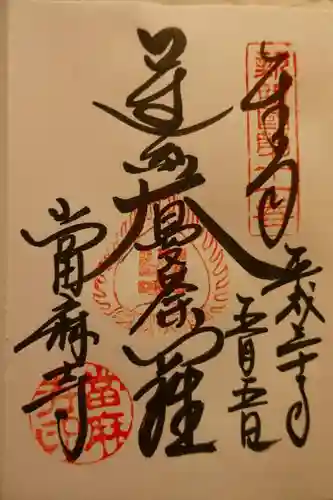 奉拝
平成三十年
五月五日
蓮糸大曼荼羅
當麻寺
當麻寺印